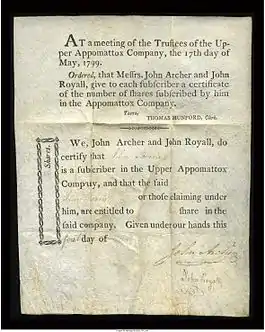 AT a meeting of the Trustees of the Up-
per Appomattox Company, the 17th day of
May, 1799.
Ordered, that Messrs. John Archer and John
Royall, give to each subscriber a certificate
of the number of shares subscribed by him
in the Appomattox Company.
Teste,
THOMAS HUNFORD, Clerk.
Shares.
We, John Archer and John Royall, do
certify that
is a subscriber in the Upper Appomattox
Company, and that the said
or those claiming under
him, are entitled to share in the
said company. Given under our hands this
first day of
John Archer
John Royall